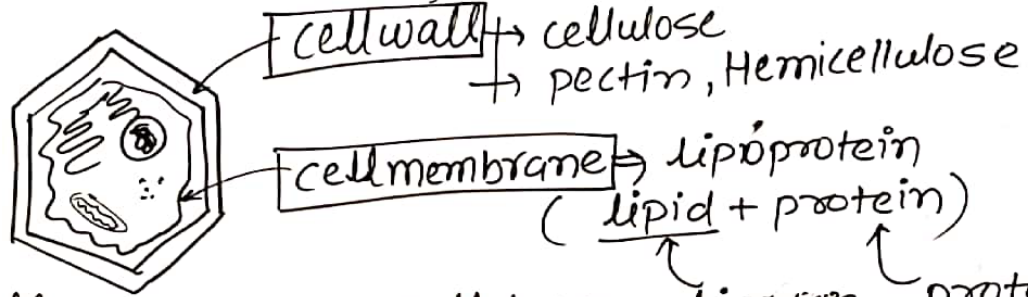 cellwall → cellulose
→ pectin, Hemicellulose
cellmembrane ⇒ lipoprotein
(lipid + protein)